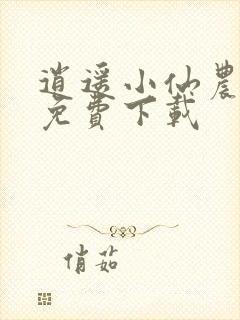 逍遥小仙農
免費下載
俏茹